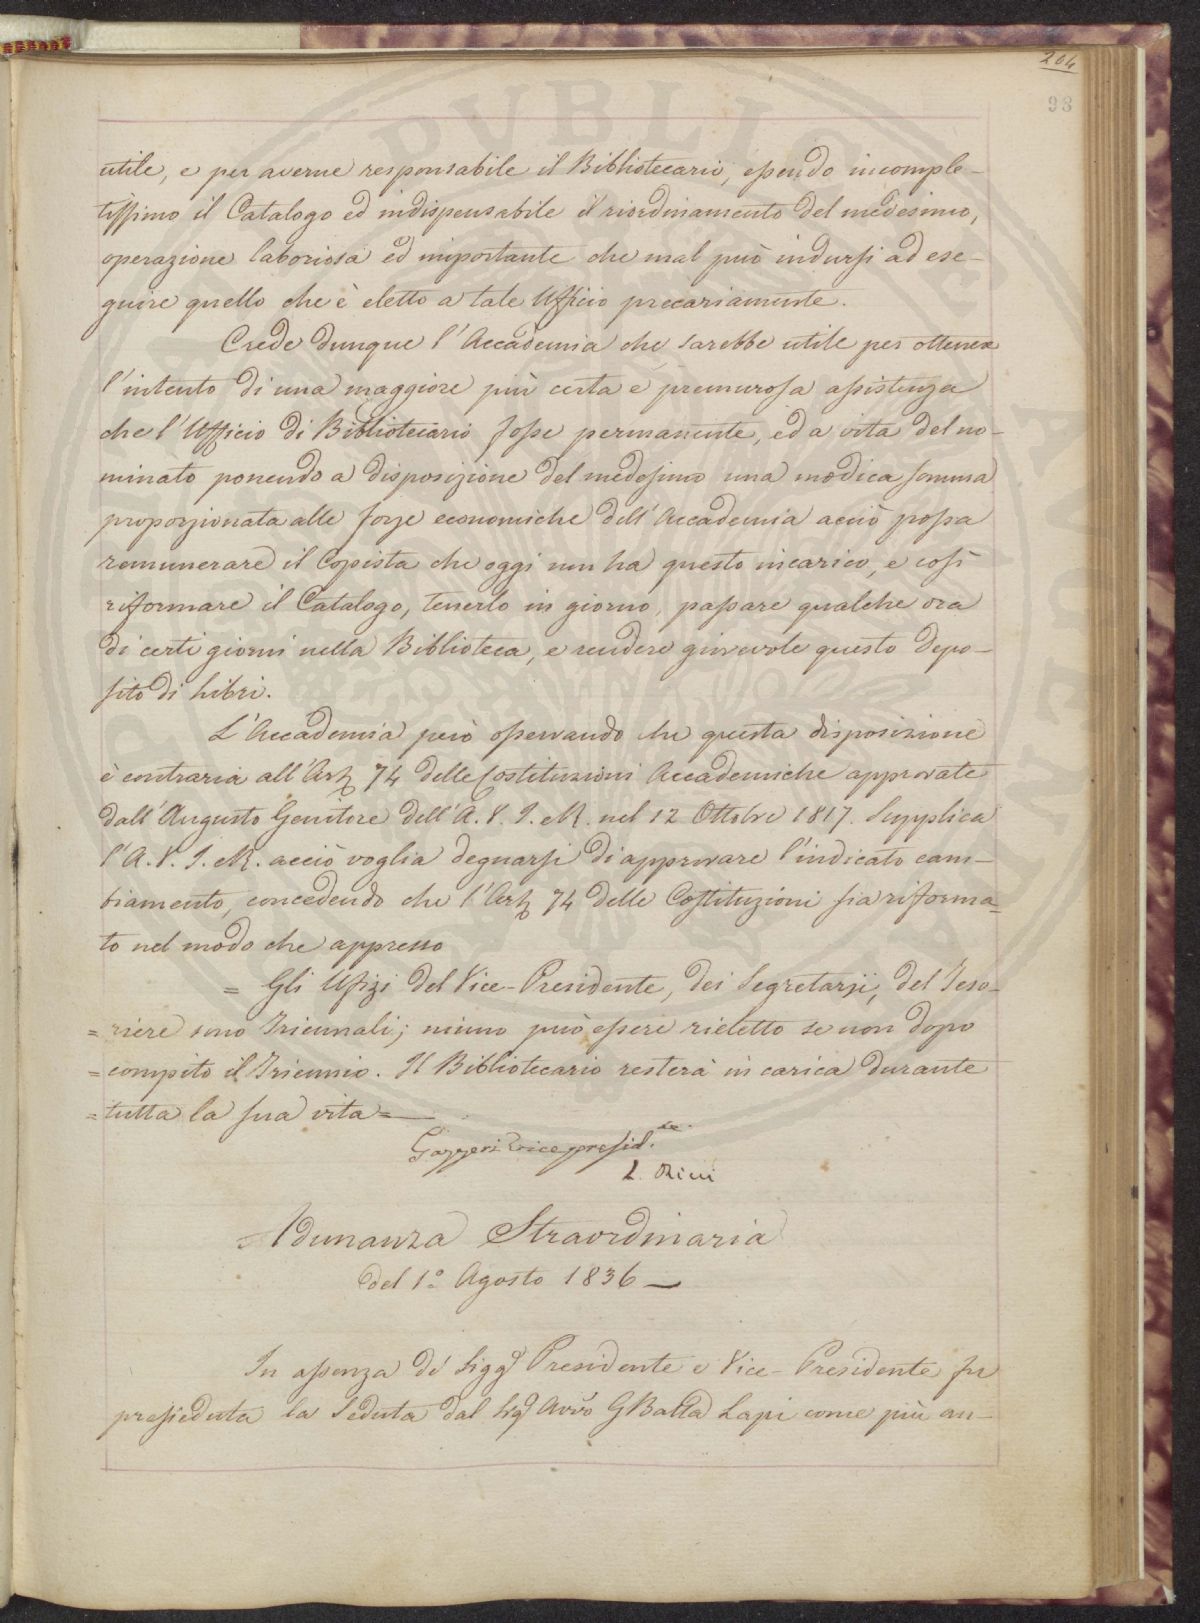 204
93
utile, e per averne responsabile il Bibliotecario, essendo incomple-
tissimo il Catalogo ed indispensabile il riordinamento del medesimo,
operazione laboriosa ed importante che mal può indursi ad ese-
guire quello che è eletto a tale Ufficio precariamente.
Crede dunque l'Accademia che sarebbe utile per ottenere
l'intento di una maggiore più certa e premurosa assistenza
che l'Ufficio di Bibliotecario fosse permanente, ed a vita del no-
minato ponendo a disposizione del medesimo una modica somma
proporzionata alle forze economiche dell'Accademia acciò possa
remunerare il Copista che oggi non ha questo incarico, e così
riformare il Catalogo, tenerlo in giorno, passare qualche ora
di certi giorni nella Biblioteca, e rendere giovevole questo depo-
sito di Libri.
L'Accademia però osservando che questa disposizione
è contraria all'Art. 74 delle Costituzioni Accademiche approvate
dall'Augusto Genitore dell'A. V. I. e R. nel 12 Ottobre 1817. Supplica
l'A. V. I. e R. acciò voglia degnarsi di approvare l'indicato cam-
biamento, concedendo che l'Art. 74 delle Costituzioni sia riforma=
to nel modo che appresso
= Gli Ufizi del Vice-Presidente, dei Segretarii, del Teso-
= riere sono Triennali; niuno può essere rieletto se non dopo
= compito il Triennio. Il Bibliotecario resterà in carica durante
= tutta la sua vita =
Gazzeri vice presid.te
L. Rini
Adunanza Straordinaria
del 1.° Agosto 1836
In assenza de' Sigg.ri Presidente e Vice-Presidente fu
presieduta la Seduta dal Sig.r Avvo GBatta Lapi come più an-